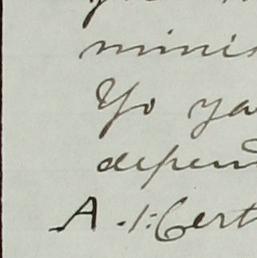 minis
Yo ya
depen
A.1:Cert